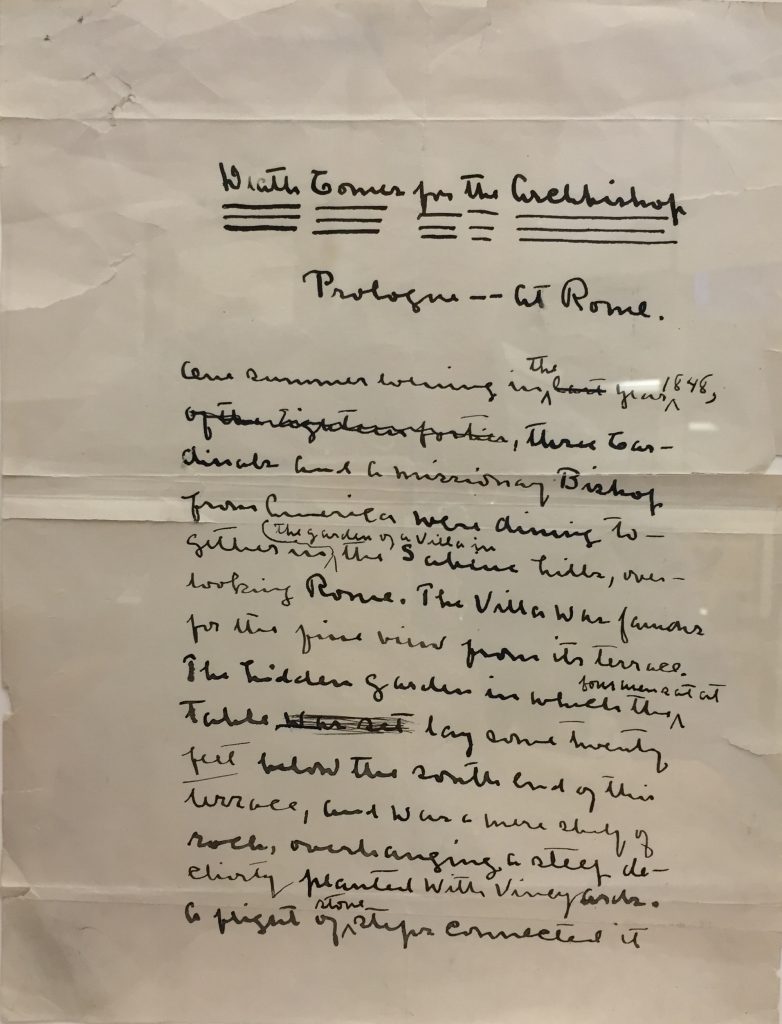 Death Comes for the Archbishop
Prologue -- At Rome.
One summer evening in the last year 1848,
of the eighteen forties, three Car-
dinals and a missionary Bishop
from America were dining to-
gether in the garden of a villa in the Sabine hills, over-
looking Rome. The Villa was famous
for the fine view from its terrace.
The hidden garden in which the four men sat at
table was set lay some twenty
feet below the south end of this
terrace, and was a mere shelf of
rock, overhanging a steep de-
clivity planted with vineyards.
A flight of stone steps connected it